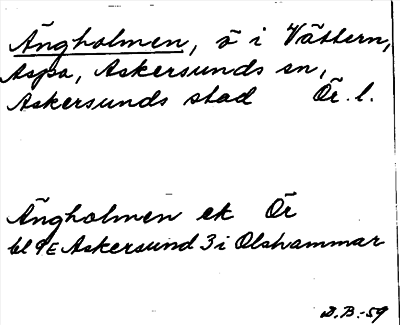 Ängholmen, ö i Vättern,
Aspa, Askersunds sn,
Askersunds stad Ör. l.
Ängholmen ek Ör
bl 9E Askersund 3i Olshammar
D.B.-59